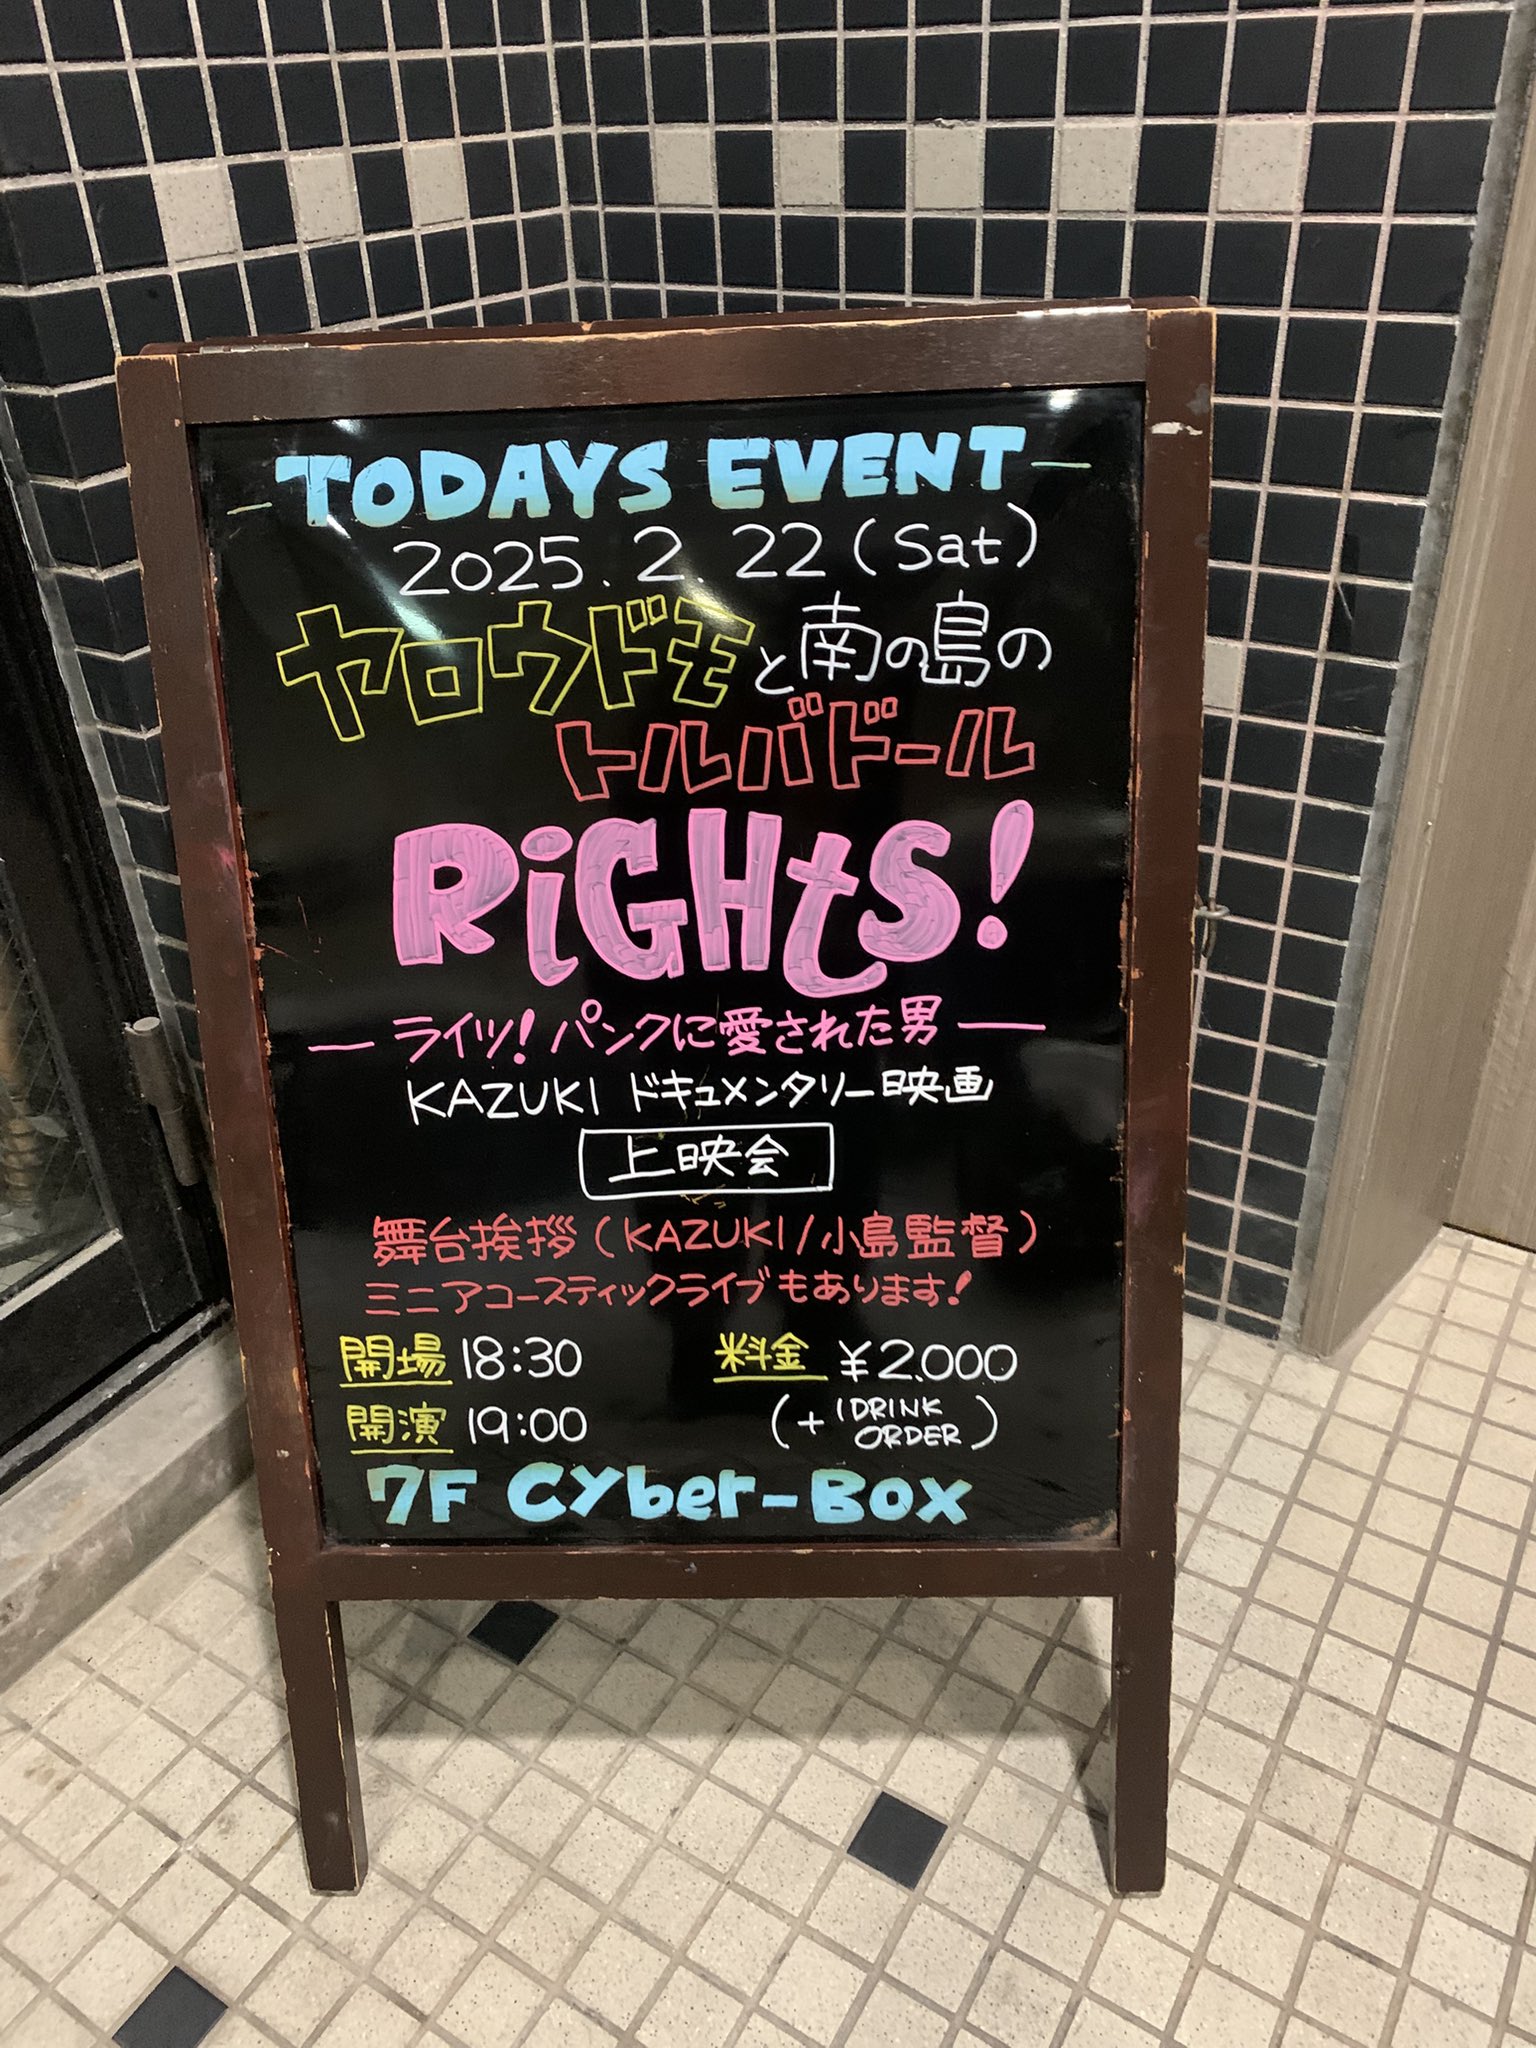 TODAYS EVENT
2025.2.22(Sat)
ヤロウドモと南の島の
トルバドール
RiGHtS!
ライツ!パンクに愛された男
KAZUKI ドキュメンタリー映画
上映会
舞台挨拶(KAZUKI/小島監督)
ミニアコースティックライブもあります!
開場 18:30 料金 ¥2.000
開演 19:00 (+1DRINK ORDER)
7F Cyber-Box